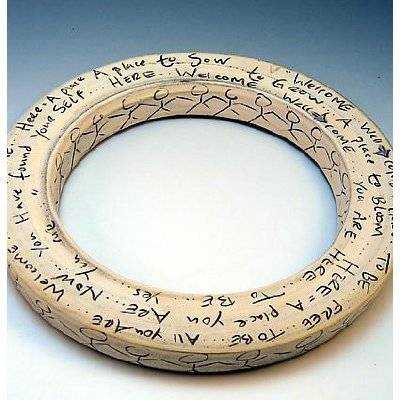 Here. A place A place to SOW .. WELCOME A
Have found YOUR SELF... HERE.. Welcome to GROW.. WELCOME A Place to BLOOM
YOU ARE HERE...
TO BE FREE TO BE All you ARE
HERE = A place you ARE
Welcome .. NOW .. You
You are Yes .. TO BE